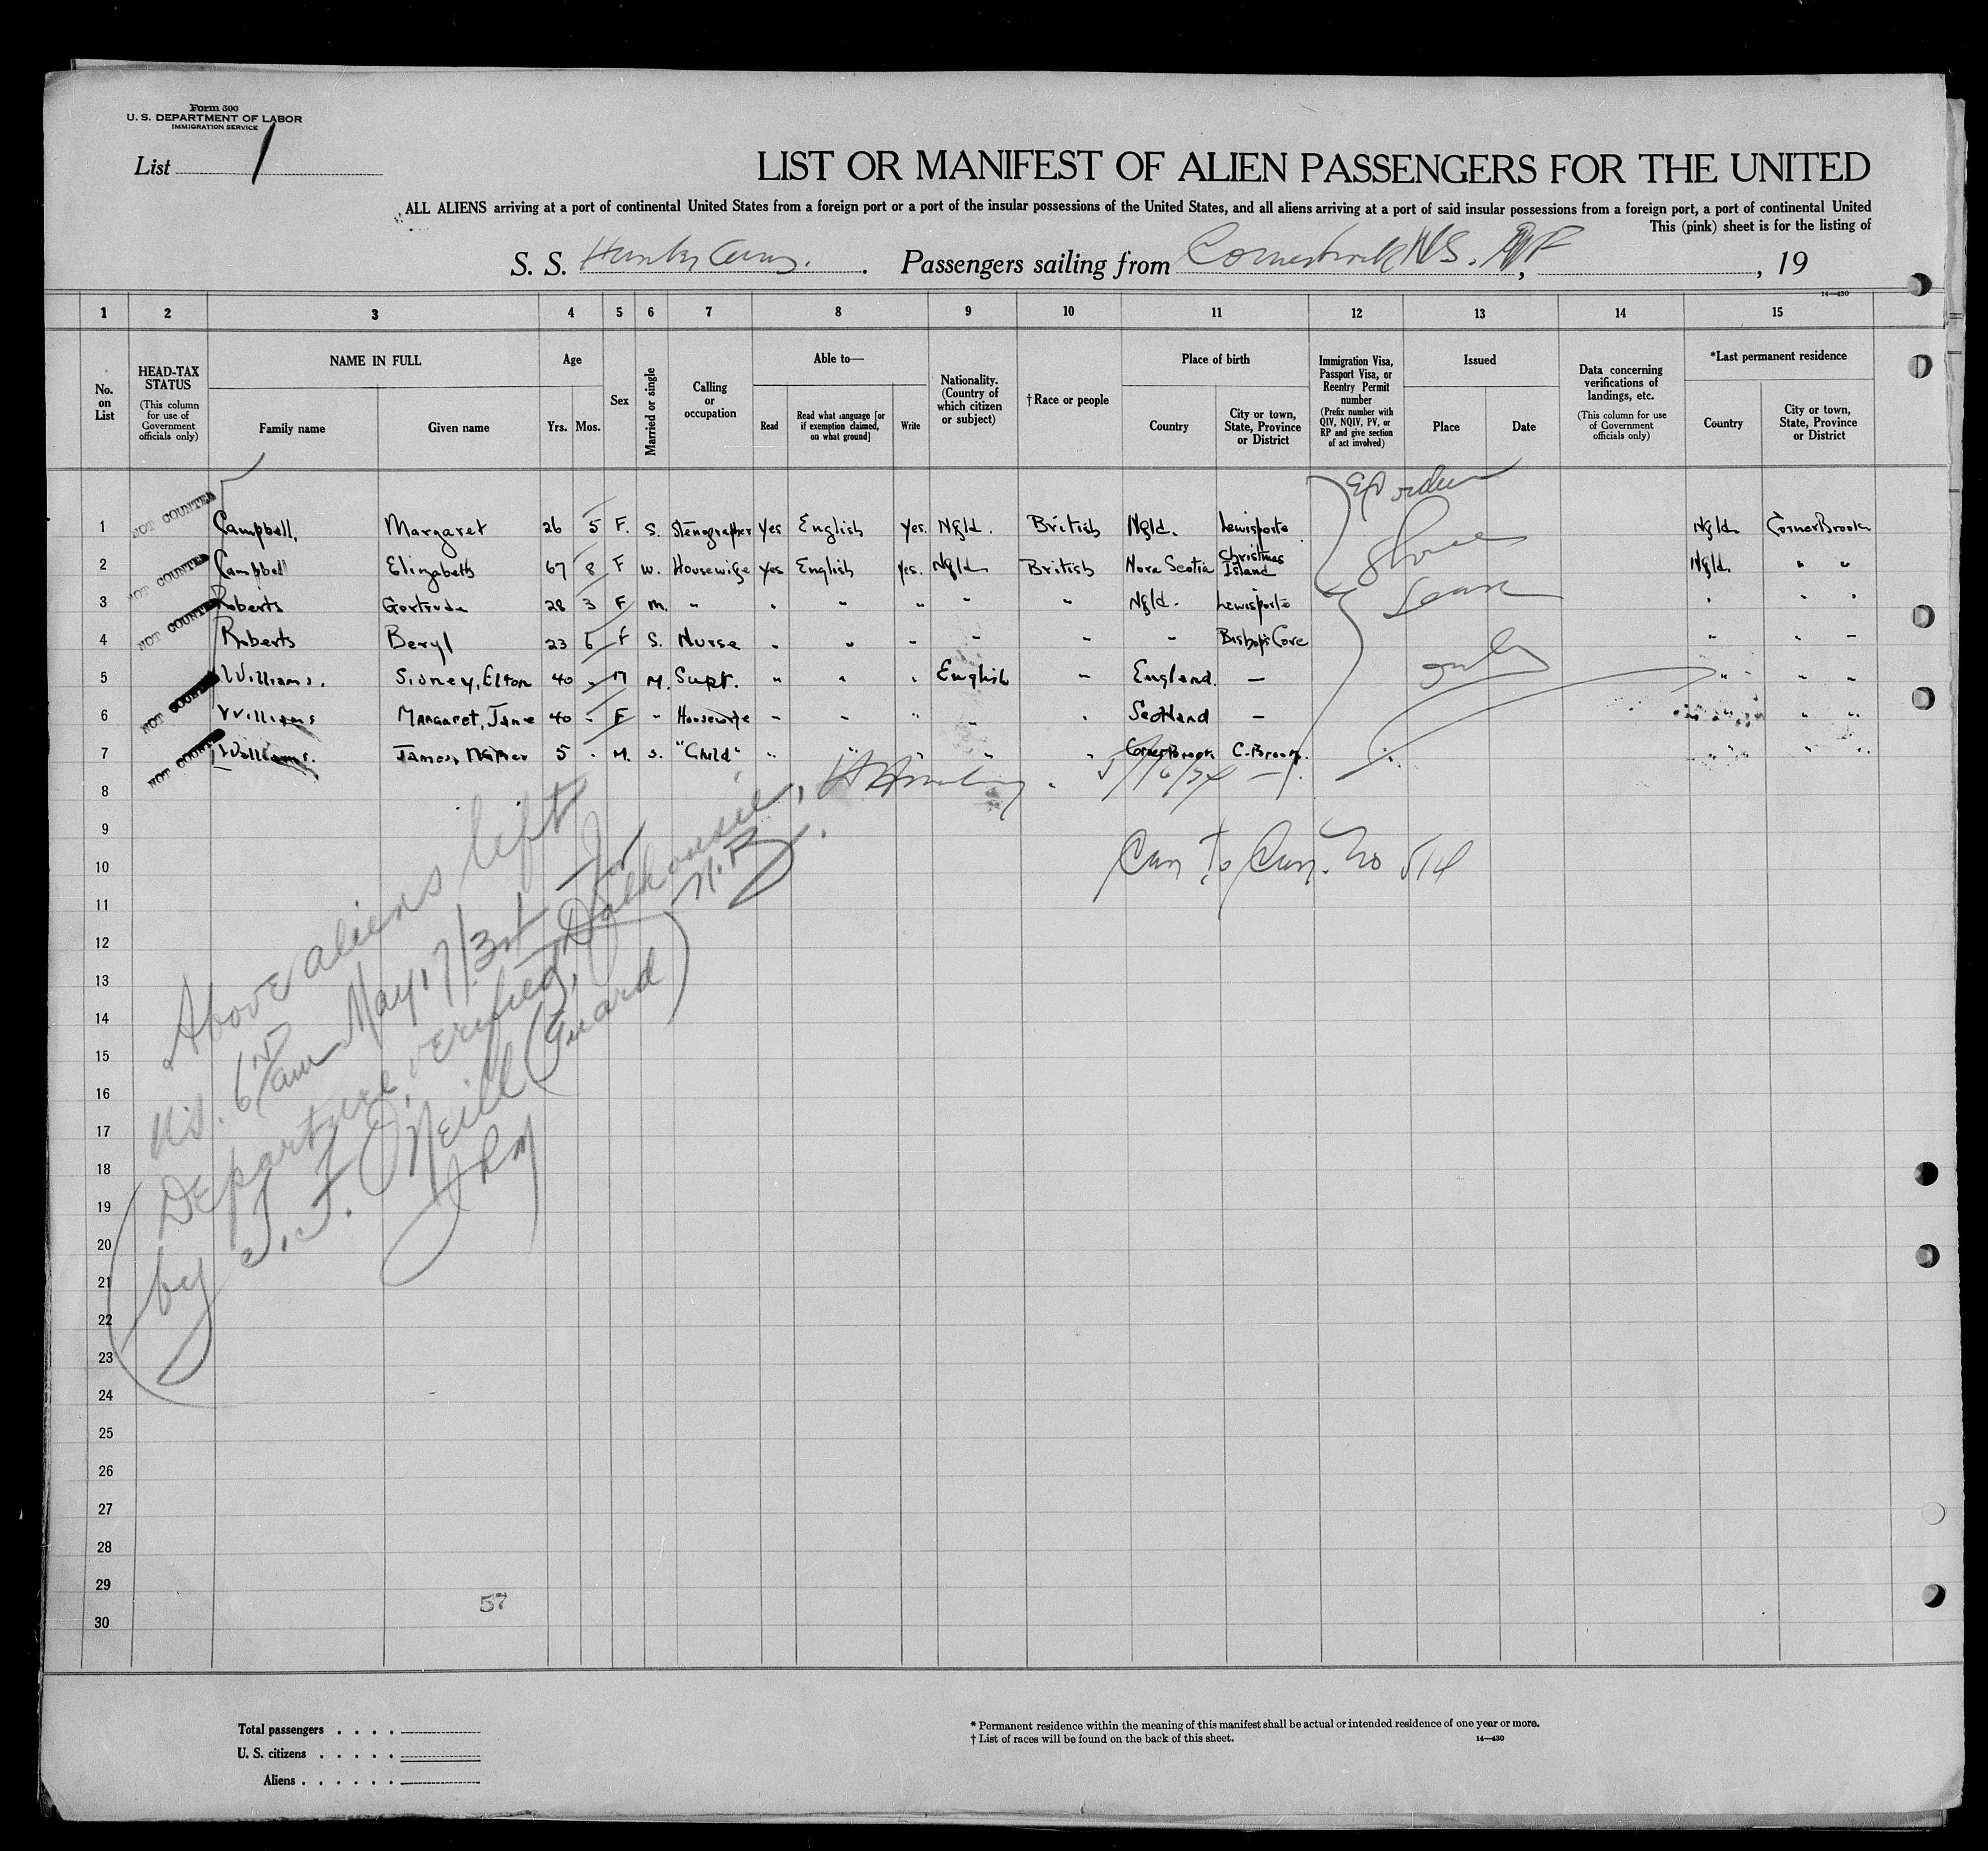 Form 500
U. S. DEPARTMENT OF LABOR
IMMIGRATION SERVICE
List 1
LIST OR MANIFEST OF ALIEN PASSENGERS FOR THE UNITED
ALL ALIENS arriving at a port of continental United States from a foreign port or a port of the insular possessions of the United States, and all aliens arriving at a port of said insular possessions from a foreign port, a port of continental United
This (pink) sheet is for the listing of
S. S. Passengers sailing from Cornerbrook , 19
14—430
1 2 3 4 5 6 7 8 9 10 11 12 13 14 15
No. on List
HEAD-TAX STATUS (This column for use of Government officials only)
NAME IN FULL
Family name Given name
Age
Yrs. Mos.
Sex
Married or single
Calling or occupation
Able to—
Read Read what language [or if exemption claimed, on what ground] Write
Nationality. (Country of which citizen or subject)
†Race or people
Place of birth
Country City or town, State, Province or District
Immigration Visa, Passport Visa, or Reentry Permit number (Prefix number with QIV, NQIV, PV, or RP and give section of act involved)
Issued
Place Date
Data concerning verifications of landings, etc. (This column for use of Government officials only)
*Last permanent residence
Country City or town, State, Province or District
1 NOT COUNTED Campbell, Margaret 26 5 F. S. Stenographer Yes English Yes. Nfld. British Nfld. Lewisporte Nfld. CornerBrook
2 NOT COUNTED Campbell Elizabeth 67 8 F W. Housewife Yes English Yes. Nfld. British Nova Scotia Christmas Island Nfld. " "
3 NOT COUNTED Roberts Gertrude 28 3 F M. " " " " " " Nfld. Lewisporte " " "
4 Roberts Beryl 23 6 F S. Nurse " " " " " " Bishop's Cove " " "
5 NOT COUNTED Williams. Sidney, Elton 40 - M M. Supt. " " " English " England. — " " "
6 Williams Margaret, Jane 40 - F " Housewife " " " " " Scotland — " " "
7 NOT COUNTED Williams. James, 5 - M. S. "Child" " " " " " CornerBrook C. Brook. " " "
8
9
10 Can to Can. No 514
11
12
13
14
15
16
17
18
19
20
21
22
23
24
25
26
27
28
29
30
Above aliens left
U.S. 6 am May, 17/31st for Dalhousie, N.B.
(Departure verified,
by T. F. O'Neill (Guard)
57
Total passengers
U. S. citizens
Aliens
* Permanent residence within the meaning of this manifest shall be actual or intended residence of one year or more.
† List of races will be found on the back of this sheet.
14—430